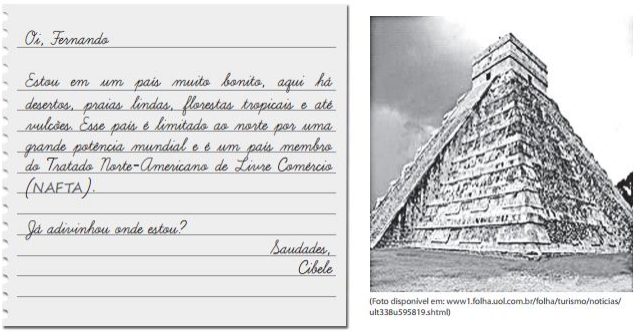 Oi, Fernando
Estou em um país muito bonito, aqui há
desertos, praias lindas, florestas tropicais e até
vulcões. Esse país é limitado ao norte por uma
grande potência mundial e é um país membro
do Tratado Norte-Americano de Livre Comércio
(NAFTA).
Já adivinhou onde estou?
Saudades,
Cibele
(Foto disponível em: www1.folha.uol.com.br/folha/turismo/noticias/
ult338u595819.shtml)